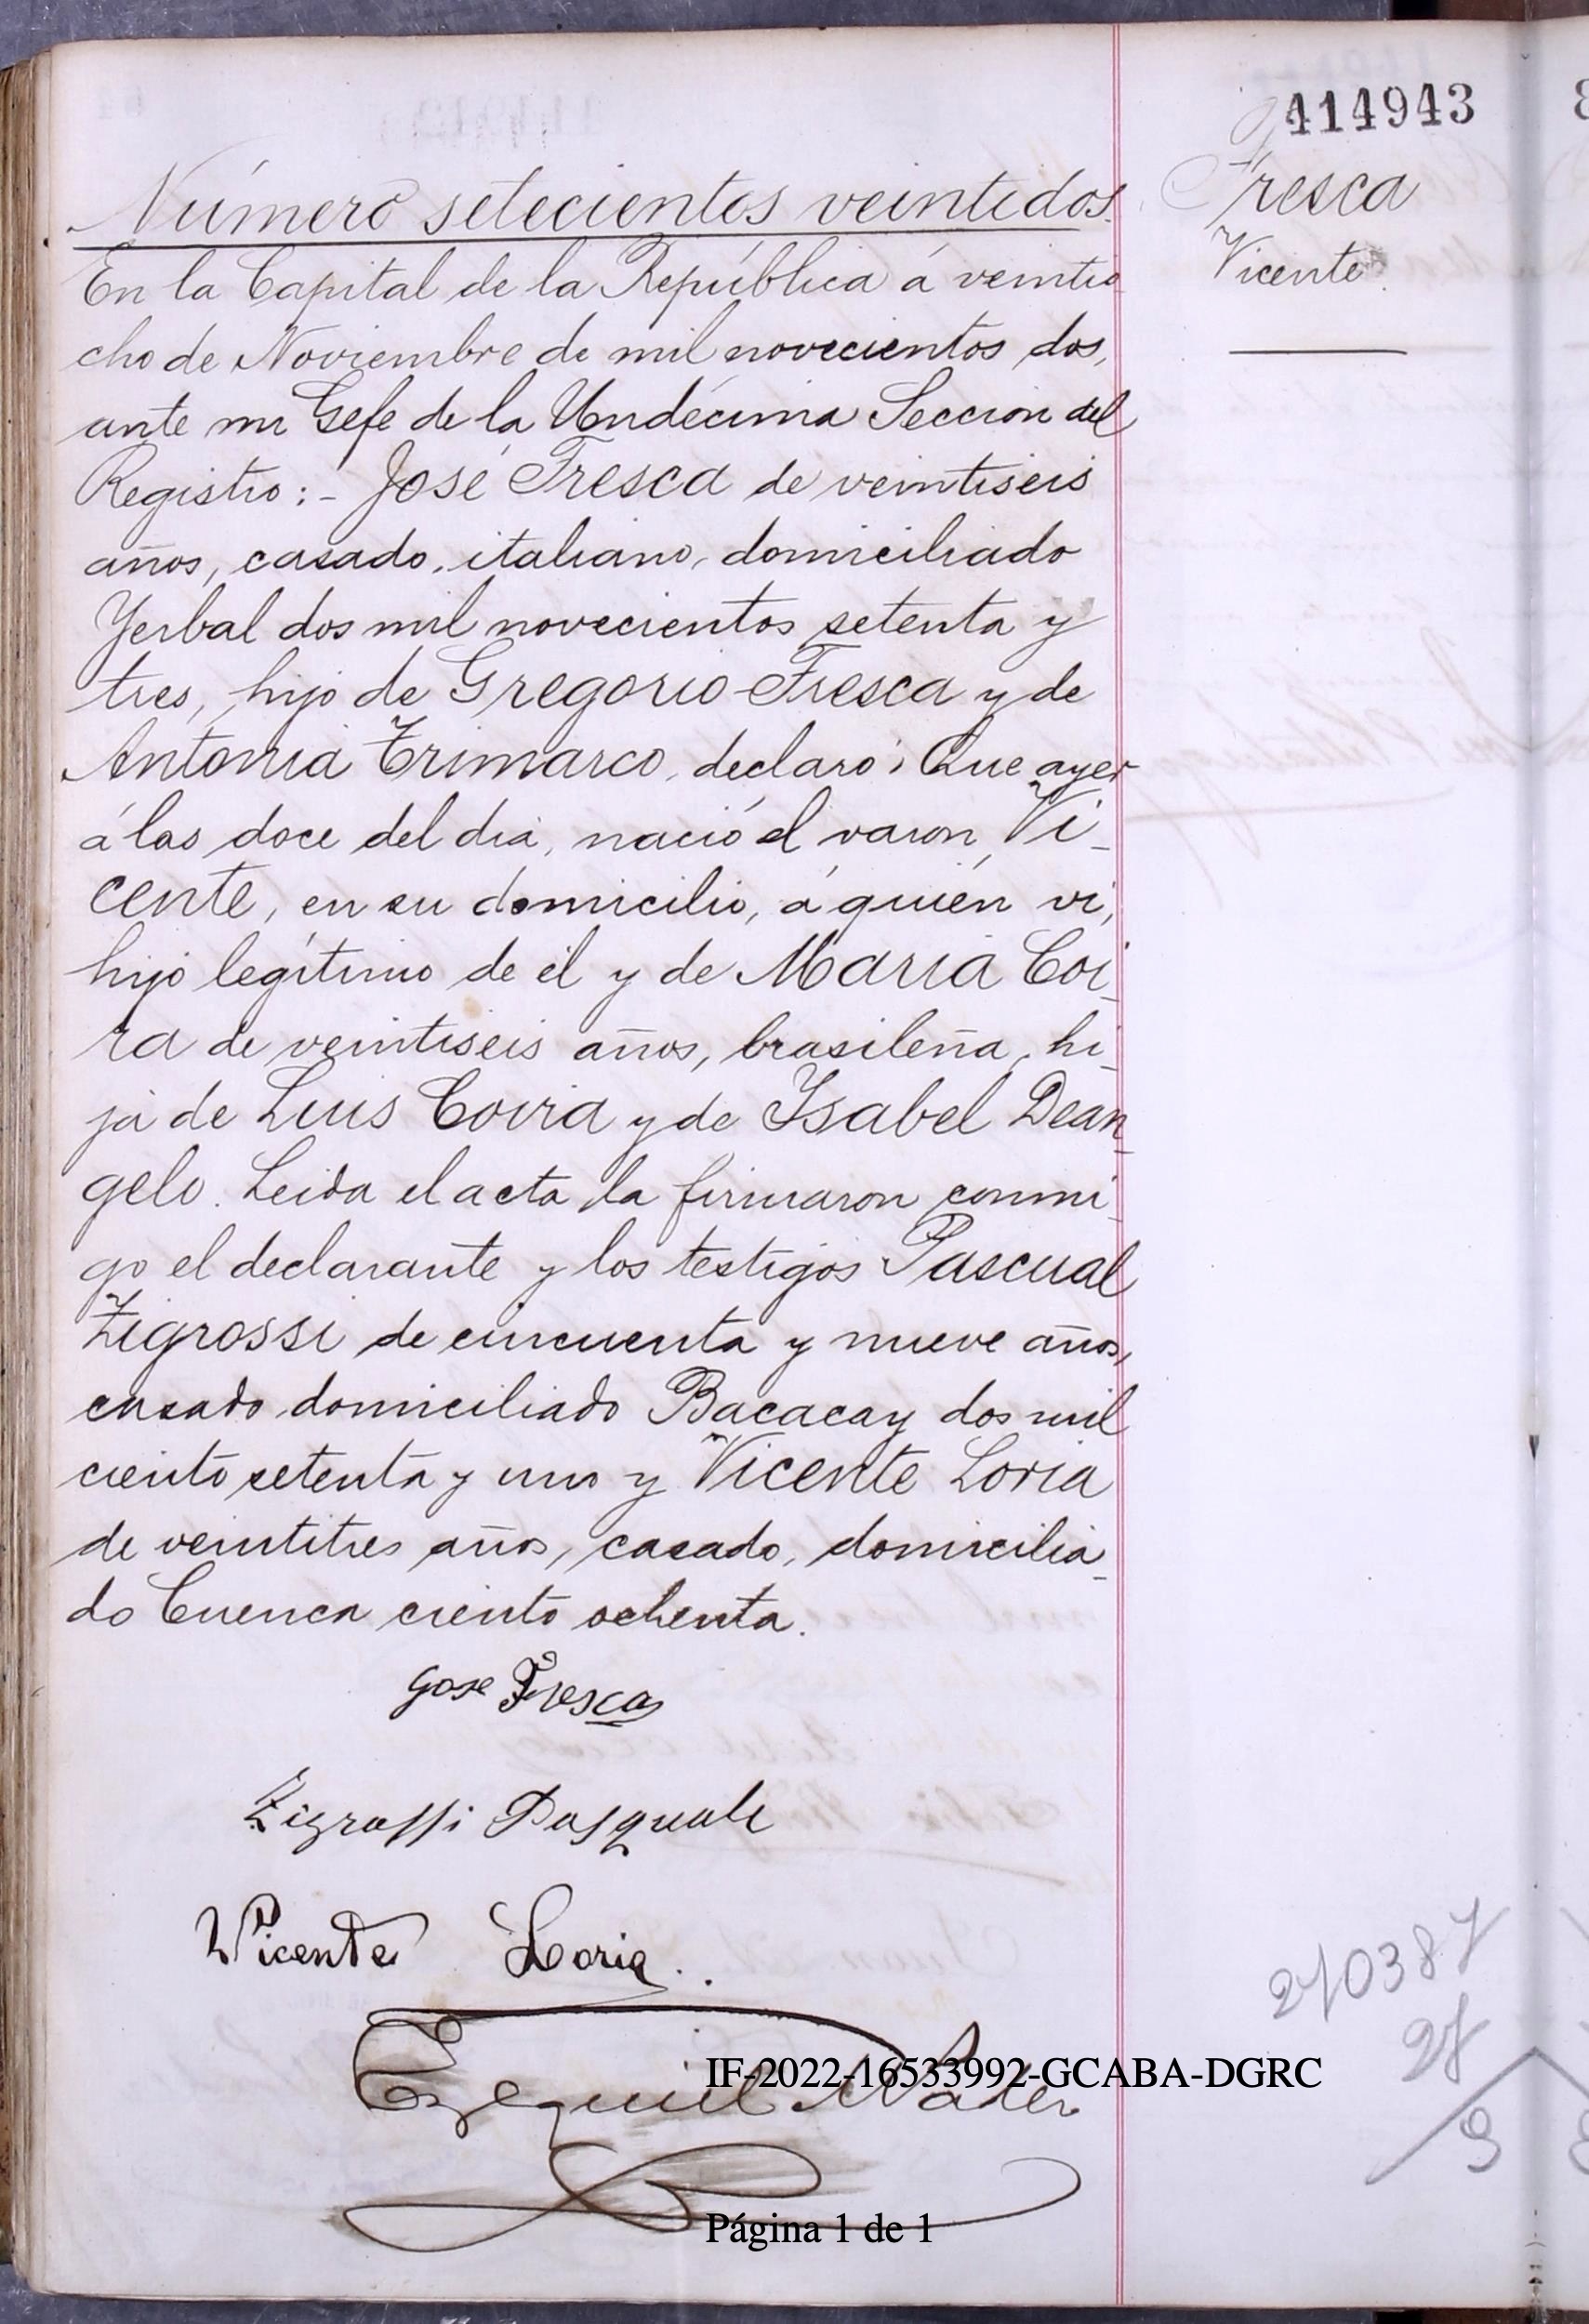 414943
Fresca
Vicente.
Número setecientos veintidos.
En la Capital de la República á veintio
cho de Noviembre de mil novecientos dos,
ante mi Gefe de la Undécima Seccion del
Registro:- José Fresca de veintiseis
años, casado, italiano, domiciliado
Yerbal dos mil novecientos setenta y
tres, hijo de Gregorio Fresca y de
Antonia Trimarco, declaró: Que ayer
á las doce del dia, nació el varon Vi-
cente, en su domicilio, á quién vi,
hijo legítimo de él y de Maria Coi-
ra de veintiseis años, brasileña, hi-
ja de Luis Coira y de Ysabel Dean-
gelo. Leida el acta la firmaron conmi-
go el declarante y los testigos Pascual
Zigrossi de cincuenta y nueve años,
casado domiciliado Bacacay dos mil
ciento setenta y uno y Vicente Loria
de veintitres años, casado, domicilia-
do Cuenca ciento ochenta.
Gose Fresca
Zigrossi Pasquale
Vicente Loria
Ezequiel
IF-2022-16533992-GCABA-DGRC
Página 1 de 1